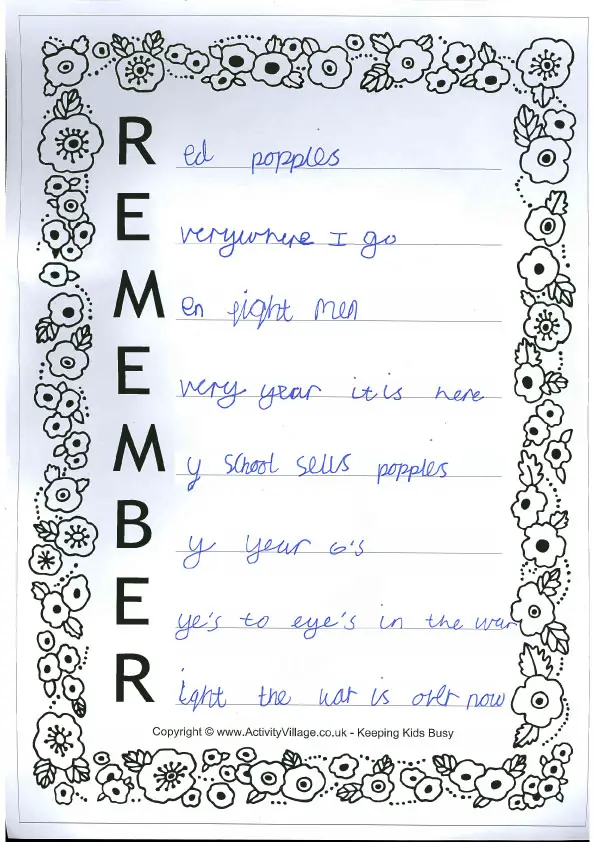 Red popples
Everywhere I go
Men fight Men
Every year it is here
My school sells popples
By year 6's
Eye's to eye's in the war
Right the war is over now
Copyright © www.ActivityVillage.co.uk - Keeping Kids Busy